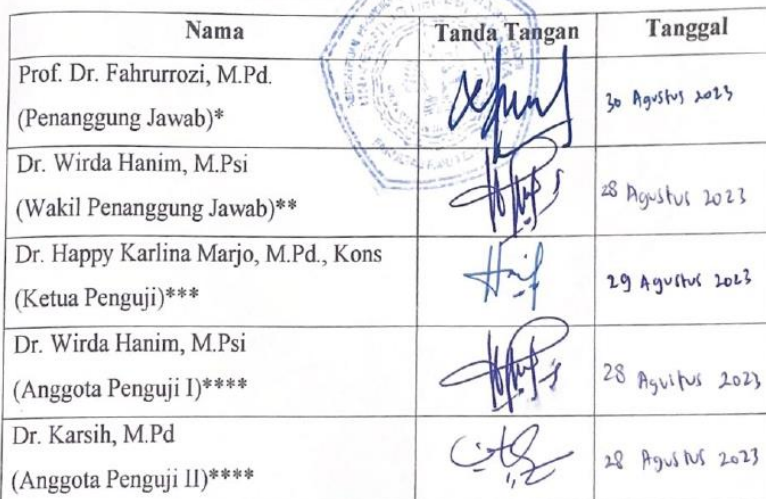 Nama Tanda Tangan Tanggal
Prof. Dr. Fahrurrozi, M.Pd.
(Penanggung Jawab)* 30 Agustus 2023
Dr. Wirda Hanim, M.Psi
(Wakil Penanggung Jawab)** 28 Agustus 2023
Dr. Happy Karlina Marjo, M.Pd., Kons
(Ketua Penguji)*** 29 Agustus 2023
Dr. Wirda Hanim, M.Psi
(Anggota Penguji I)**** 28 Agustus 2023
Dr. Karsih, M.Pd
(Anggota Penguji II)**** 28 Agustus 2023